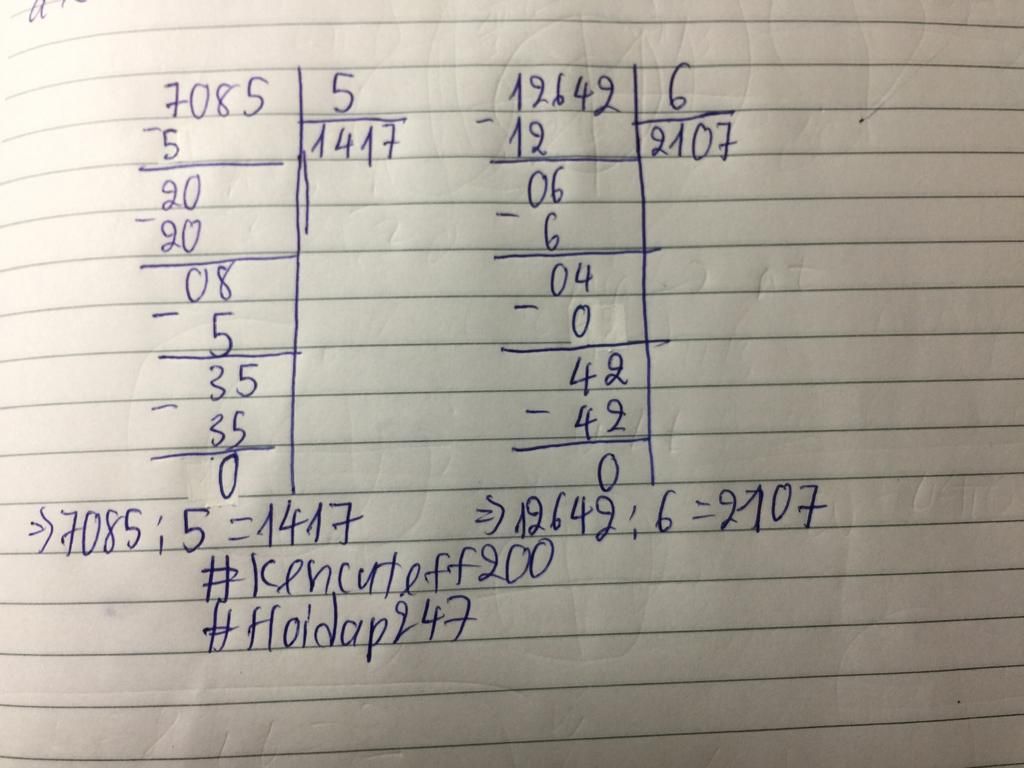 7085 5
-5 1417
20
-20
08
- 5
35
- 35
0
12642 6
-12 2107
06
- 6
04
- 0
42
- 42
0
⇒7085 : 5 = 1417
⇒12642 : 6 = 2107
#Kencuteff200
#Hoidap247